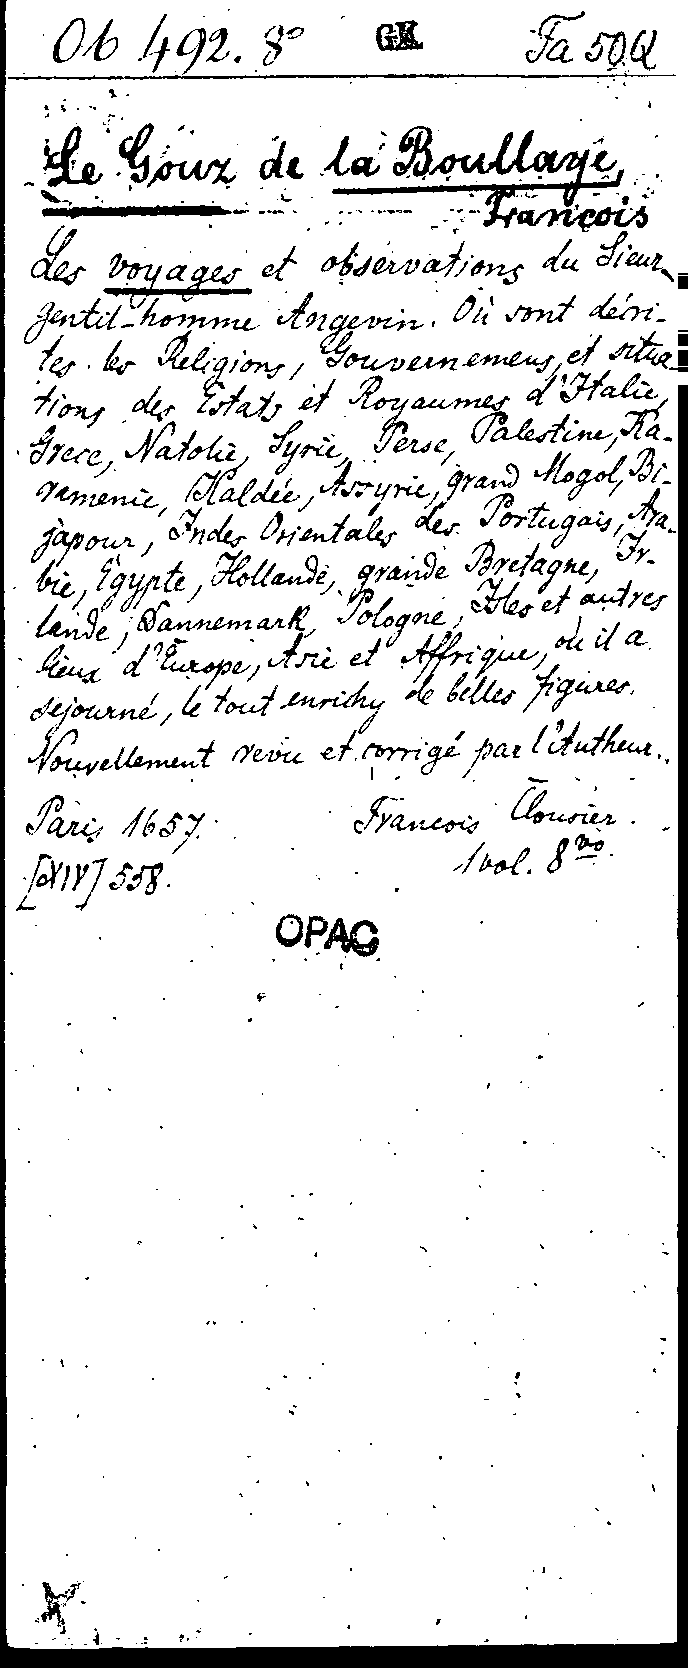 Ob 492. 8° GK Fa 50Q
Le Gouz de la Boullaye,
François
Les voyages et observations du Sieur
gentil-homme Angevin. Où sont décri-
tes les Religions, Gouvernemens, et situa
tions des Estats et Royaumes d'Italie,
Grece, Natolie, Syrie, Perse, Palestine, Ka-
ramenie, Kaldée, Assyrie, grand Mogol, Bi-
japour, Indes Orientales des Portugais, Ara-
bie, Egypte, Hollande, grande Bretagne, Ir-
lande, Dannemark, Pologne, Isles et autres
lieux d'Europe, Asie et Affrique, où il a
sejourné, le tout enrichy de belles figures.
Nouvellement revu et corrigé par l'Autheur.
Paris 1657. François Clousier.
[XIV] 558. 1 vol. 8vo.
OPAC